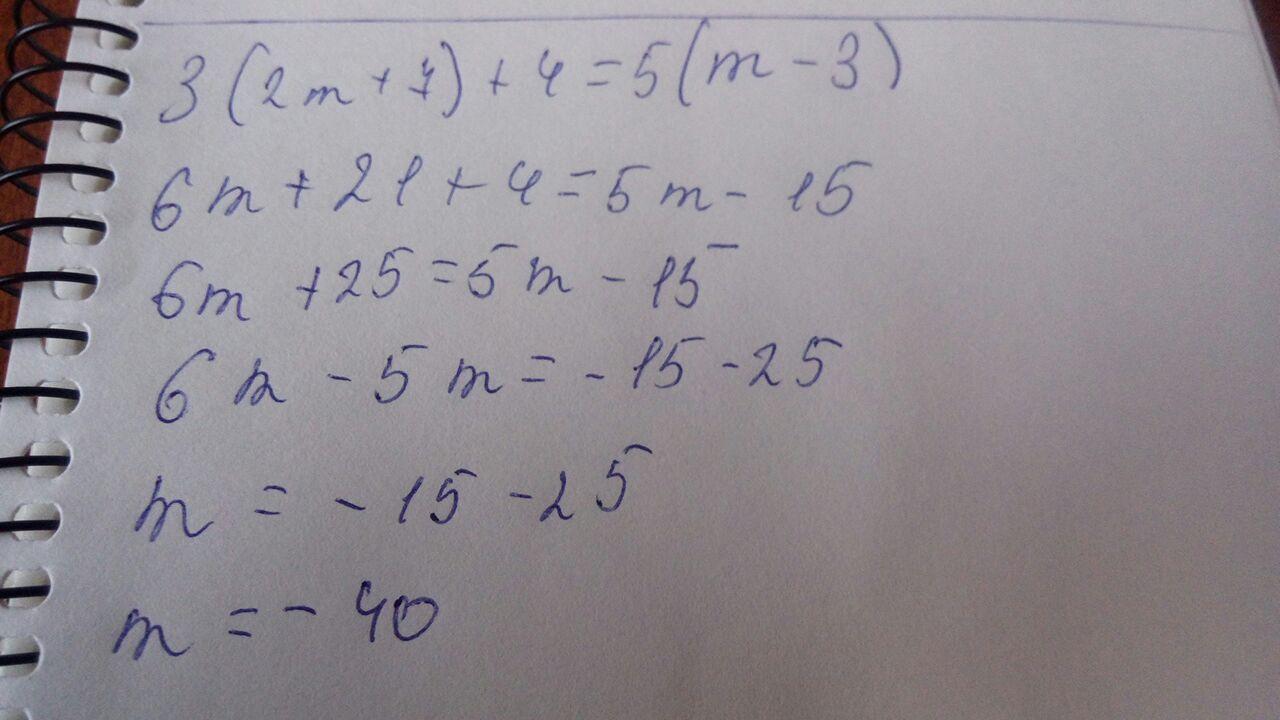 3(2m+7)+4=5(m-3)
6m+21+4=5m-15
6m+25=5m-15
6m-5m=-15-25
m=-15-25
m=-40